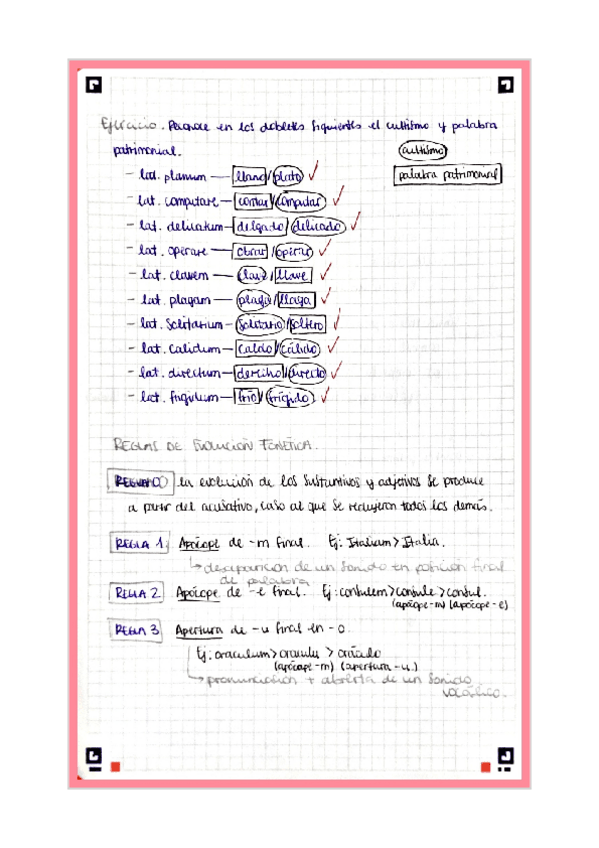 Ejercicio. Reconoce en los dobletes siguientes el cultismo y palabra
patrimonial.
cultismo
palabra patrimonial
- lat. planum — llano / plano ✓
- lat. computare — contar / computar ✓
- lat. delicatum — delgado / delicado ✓
- lat. operare — obrar / operar ✓
- lat. clavem — clave / llave ✓
- lat. plagam — plaga / llaga ✓
- lat. Solitarium — Solitario / Soltero ✓
- lat. calidum — caldo / cálido ✓
- lat. directum — derecho / directo ✓
- lat. frigidum — frío / frígido ✓
REGLAS DE EVOLUCIÓN FONÉTICA.
REGLA 0 la evolución de los sustantivos y adjetivos se produce
a partir del acusativo, caso al que se redujeron todos los demás.
REGLA 1. Apócope de -m final. Ej: Italiam > Italia.
↳ desaparición de un sonido en posición final
de palabra
REGLA 2. Apócope de -e final. Ej: consulem > consule > consul.
(apócope -m) (apócope -e)
REGLA 3 Apertura de -u final en -o.
Ej: oraculum > oraculu > oráculo
(apócape -m) (apertura -u.)
↳ pronunciación + abierta de un sonido
vocálico.